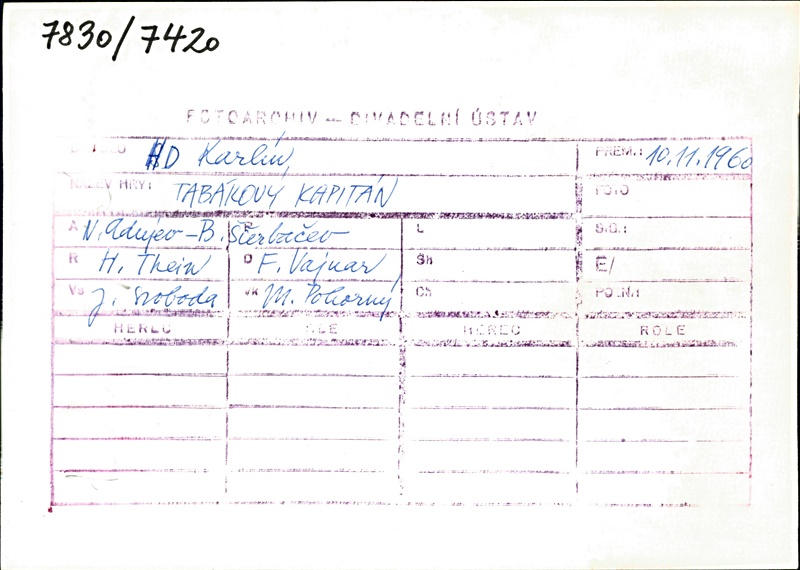 7830/7420
FOTOARCHIV — DIVADELNÍ ÚSTAV
DIVADLO HD Karlín PREM.: 10.11.1960
NÁZEV HRY: TABÁKOVÝ KAPITÁN FOTO
A N. Adujev - B. Ščerbačev L S.G.:
R H. Thein D F. Vajnar Sh E/
Vs J. Svoboda Vk M. Pokorný Ch POZN.:
HEREC ROLE HEREC ROLE